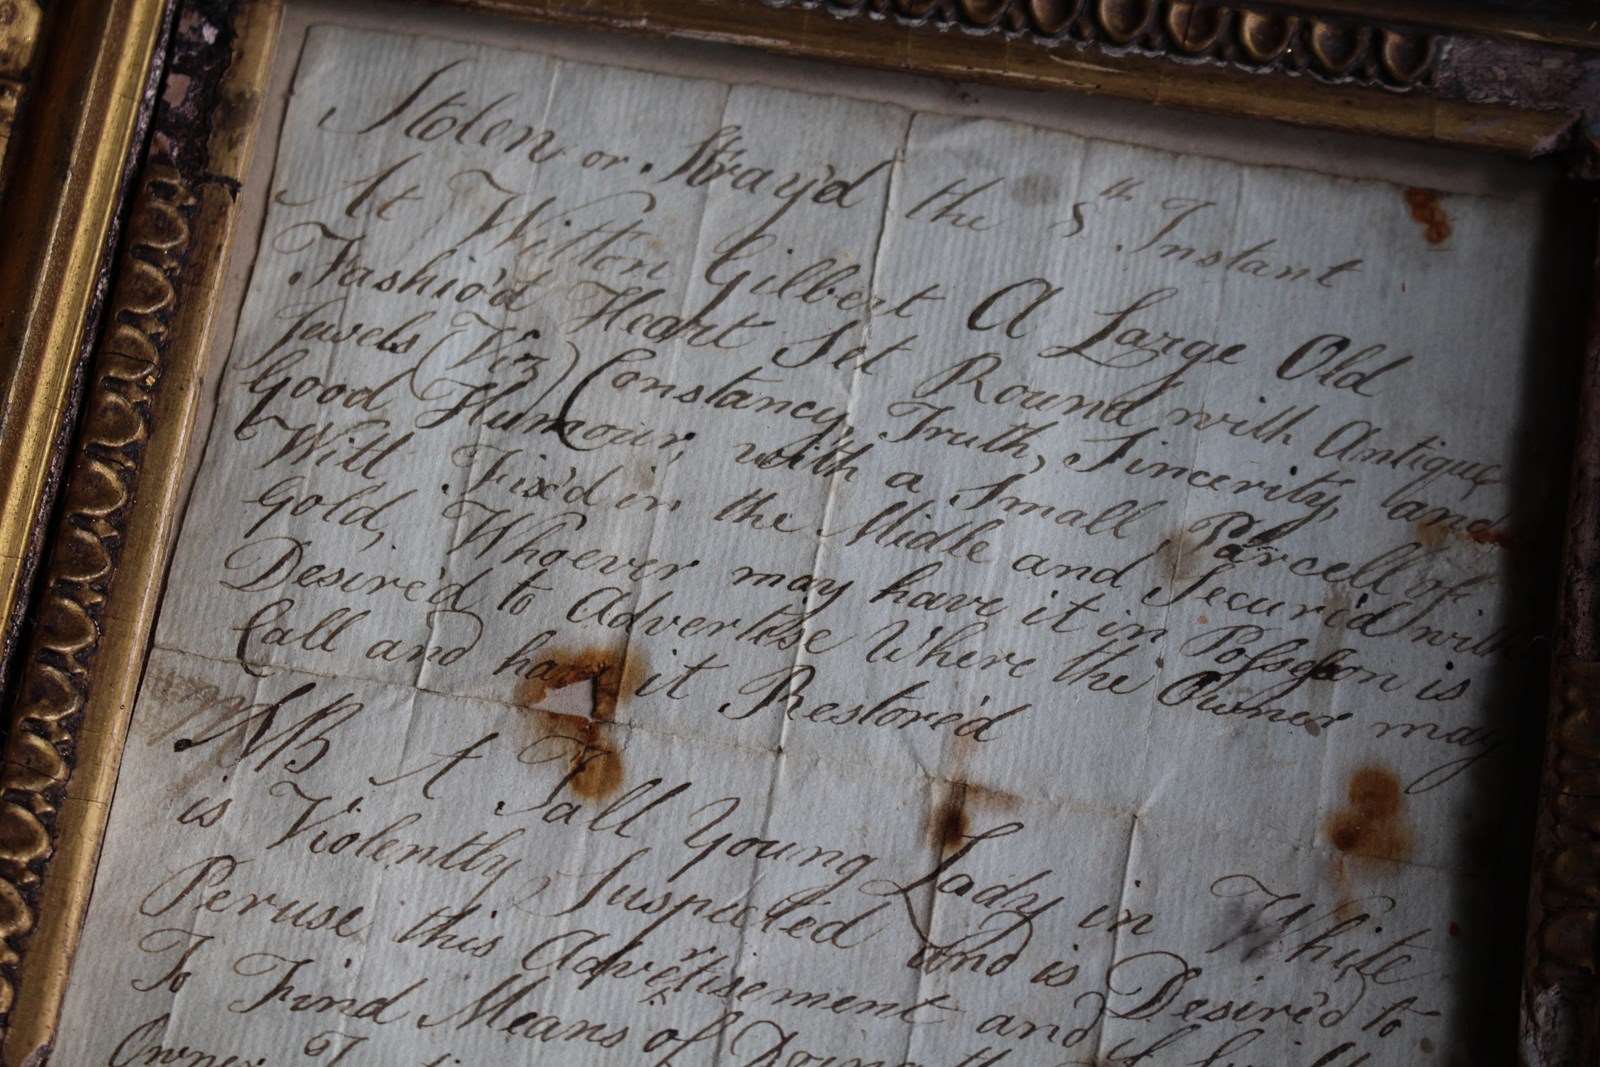 Stolen or Stray'd the 5th Instant
At Witton Gilbert A Large Old
Fashio'd Heart Set Round with Antique
Jewels (Viz) Constancy, Truth, Sincerity, and
Good Humour, with a Small Parcell of
Witt Fix'd in the Midle and Secur'd with
Gold, Whoever may have it in Possesion is
Desire'd to Advertise Where the Owner may
Call and have it Restore'd
NB A Tall Young Lady in White
is Violently Suspected and is Desire'd to
Peruse this Advertisement and if
To Find Means of Doing
Owner